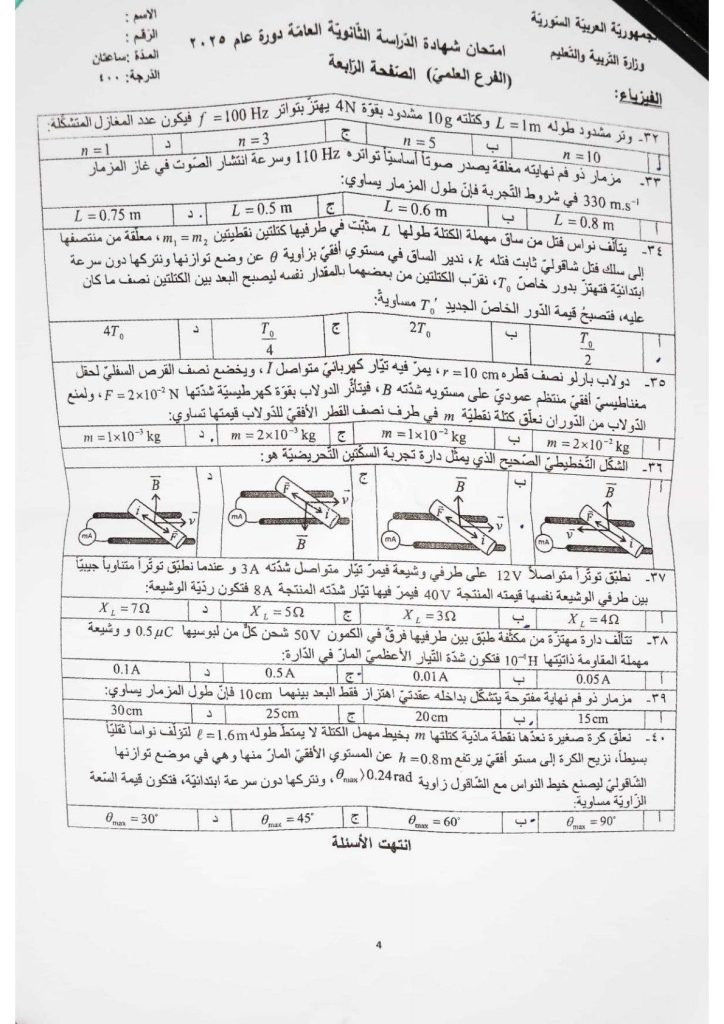 الجمهورية العربية السورية
وزارة التربية والتعليم
امتحان شهادة الدراسة الثانوية العامة دورة عام ٢٠٢٥
(الفرع العلمي) الصفحة الرابعة
الاسم :
الرقم :
المدة : ساعتان
الدرجة: ٤٠٠
الفيزياء:
٣٢- وتر مشدود طوله L = 1m وكتلته 10g مشدود بقوة 4N يهتز بتواتر f = 100 Hz فيكون عدد المغازل المتشكلة:
أ n = 10 ب n = 5 ج n = 3 د n = 1
٣٣- مزمار ذو فم نهايته مغلقة يصدر صوتاً أساسياً تواتره 110 Hz وسرعة انتشار الصوت في غاز المزمار
330 m.s⁻¹ في شروط التجربة فإن طول المزمار يساوي:
أ L = 0.8 m ب L = 0.6 m ج L = 0.5 m د L = 0.75 m
٣٤- يتألف نواس فتل من ساق مهملة الكتلة طولها L مثبت في طرفيها كتلتين نقطيتين m₁ = m₂ ، معلقة من منتصفها
إلى سلك فتل شاقولي ثابت فتله k ، ندير الساق في مستوي أفقي بزاوية θ عن وضع توازنها ونتركها دون سرعة
ابتدائية فتهتز بدور خاص T₀ ، نقرب الكتلتين من بعضهما بالمقدار نفسه ليصبح البعد بين الكتلتين نصف ما كان
عليه، فتصبح قيمة الدور الخاص الجديد T₀′ مساوية:
أ T₀/2 ب 2T₀ ج T₀/4 د 4T₀
٣٥- دولاب بارلو نصف قطره r = 10 cm ، يمر فيه تيار كهربائي متواصل I ، ويخضع نصف القرص السفلي لحقل
مغناطيسي أفقي منتظم عمودي على مستويه شدته B ، فيتأثر الدولاب بقوة كهرطيسية شدتها F = 2×10⁻² N ، ولمنع
الدولاب من الدوران نعلق كتلة نقطية m في طرف نصف القطر الأفقي للدولاب قيمتها تساوي:
أ m = 2×10⁻² kg ب m = 1×10⁻² kg ج m = 2×10⁻³ kg د m = 1×10⁻³ kg
٣٦- الشكل التخطيطي الصحيح الذي يمثل دارة تجربة السكتين التحريضية هو:
أ B F v i mA ب B F v i mA ج B F v i mA د B F v i mA
٣٧- نطبق توتراً متواصلاً 12V على طرفي وشيعة فيمر تيار متواصل شدته 3A و عندما نطبق توتراً متناوباً جيبياً
بين طرفي الوشيعة نفسها قيمته المنتجة 40V فيمر فيها تيار شدته المنتجة 8A فتكون ردية الوشيعة:
أ X_L = 4Ω ب X_L = 3Ω ج X_L = 5Ω د X_L = 7Ω
٣٨- تتألف دارة مهتزة من مكثفة طبق بين طرفيها فرق في الكمون 50V شحن كل من لبوسيها 0.5 μC و وشيعة
مهملة المقاومة ذاتيتها 10⁻⁴ H فتكون شدة التيار الأعظمي المار في الدارة:
أ 0.05A ب 0.01A ج 0.5A د 0.1A
٣٩- مزمار ذو فم نهاية مفتوحة يتشكل بداخله عقدتي اهتزاز فقط البعد بينهما 10cm فإن طول المزمار يساوي:
أ 15cm ب 20cm ج 25cm د 30cm
٤٠- نعلق كرة صغيرة نعدها نقطة مادية كتلتها m بخيط مهمل الكتلة لا يمتط طوله ℓ = 1.6m لتؤلف نواساً ثقلياً
بسيطاً، نزيح الكرة إلى مستو أفقي يرتفع h = 0.8m عن المستوي الأفقي المار منها وهي في موضع توازنها
الشاقولي ليصنع خيط النواس مع الشاقول زاوية θmax⟩0.24rad ، ونتركها دون سرعة ابتدائية، فتكون قيمة السعة
الزاوية مساوية:
أ θmax = 90° ب θmax = 60° ج θmax = 45° د θmax = 30°
انتهت الأسئلة
4